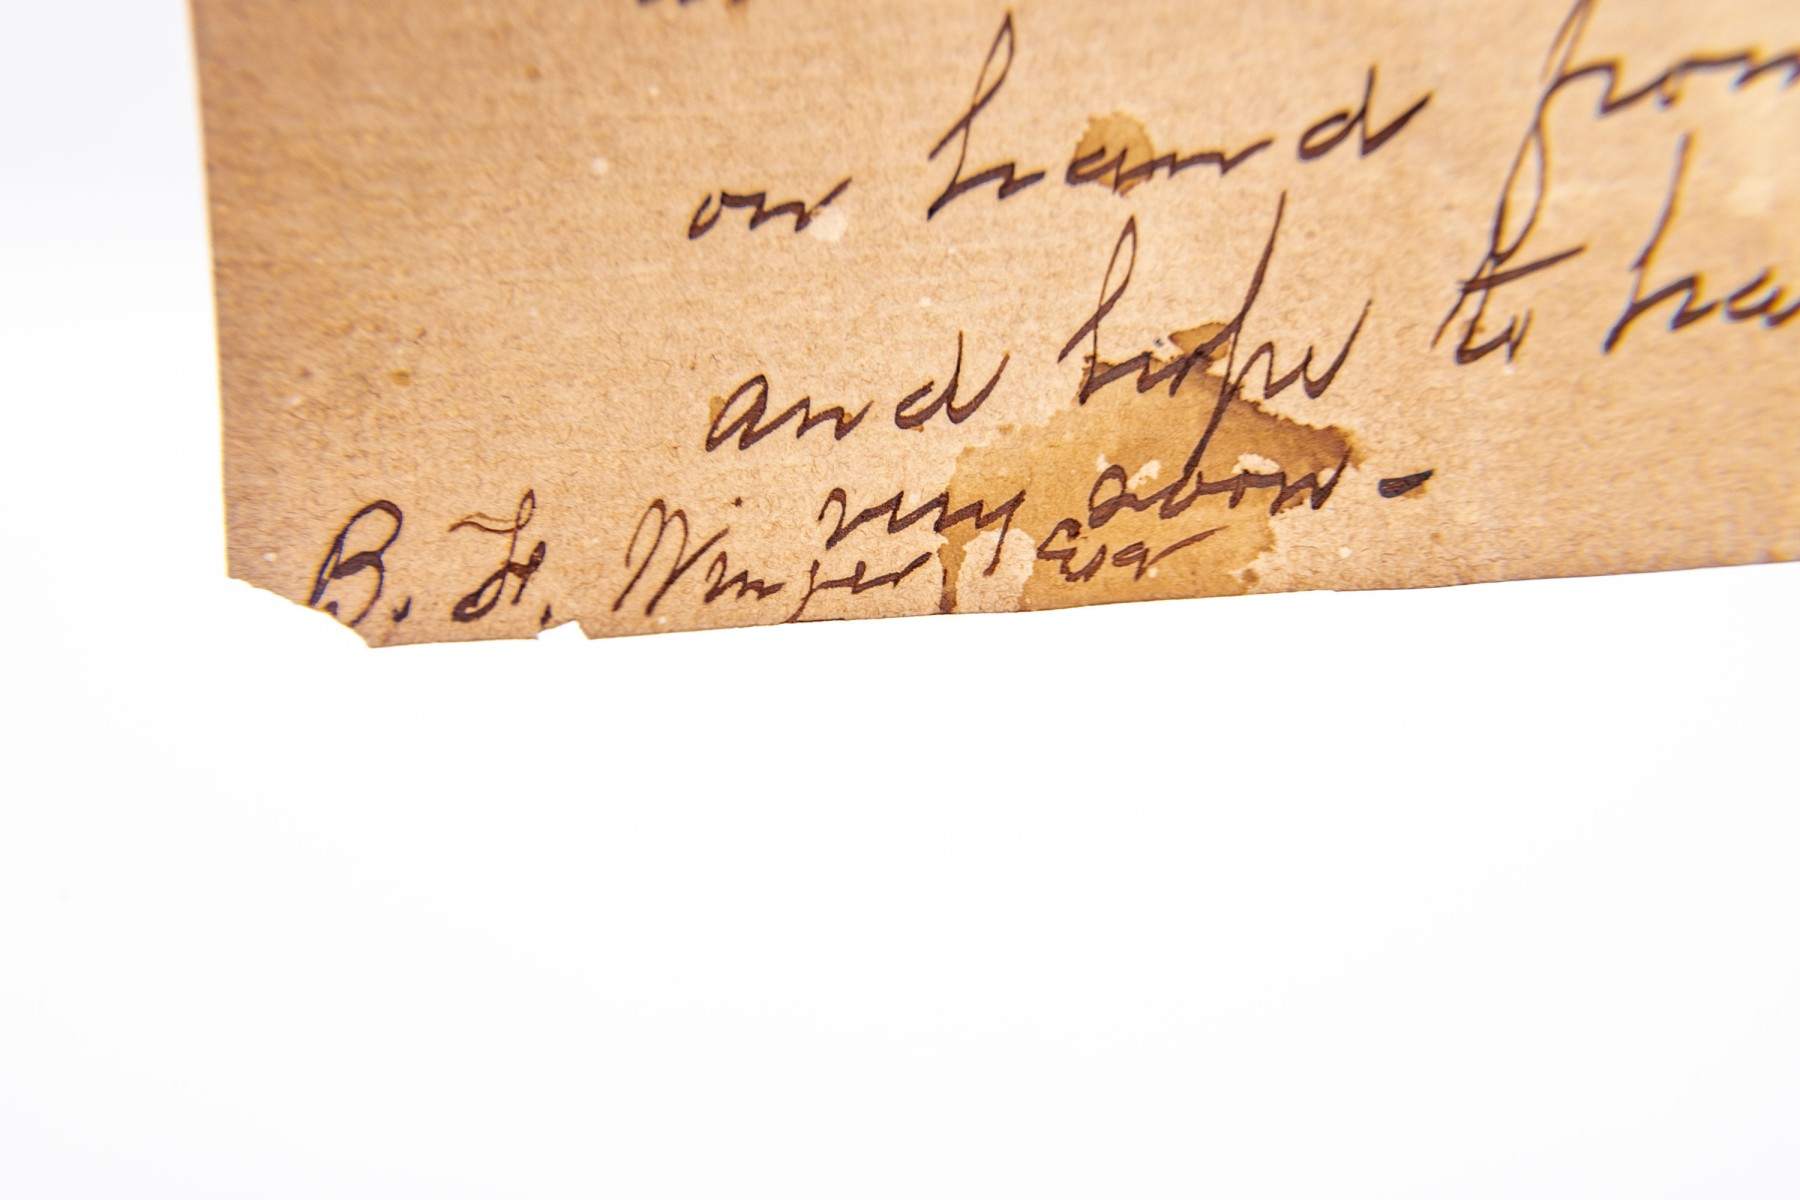 on hand from
and hope to hea
very soon -
B. F. Winger Esq